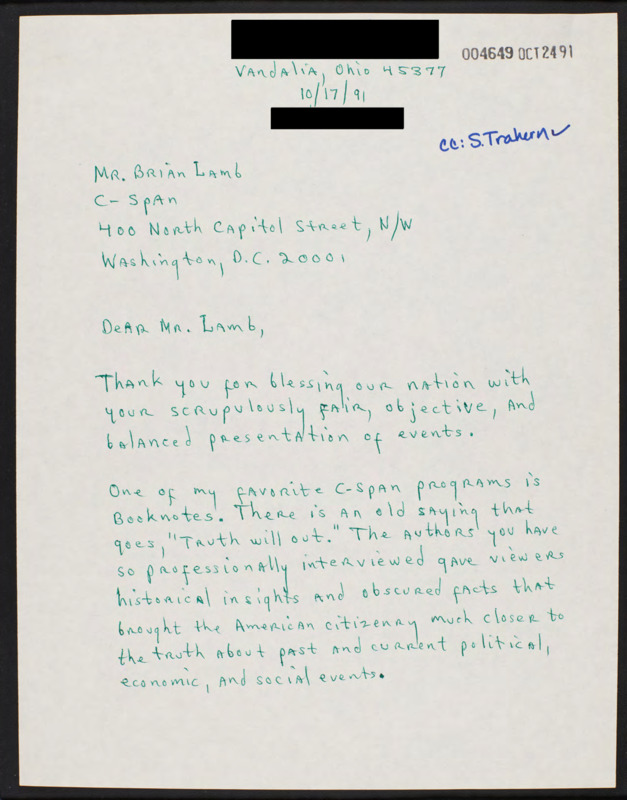 004649 OCT 24 91
Vandalia, Ohio 45377
10/17/91
cc: S. Trahern
Mr. Brian Lamb
C-Span
400 North Capitol Street, N/W
Washington, D.C. 20001
Dear Mr. Lamb,
Thank you for blessing our nation with
your scrupulously fair, objective, and
balanced presentation of events.
One of my favorite C-Span programs is
Booknotes. There is an old saying that
goes, "Truth will out." The authors you have
so professionally interviewed gave viewers
historical insights and obscured facts that
brought the American citizenry much closer to
the truth about past and current political,
economic, and social events.